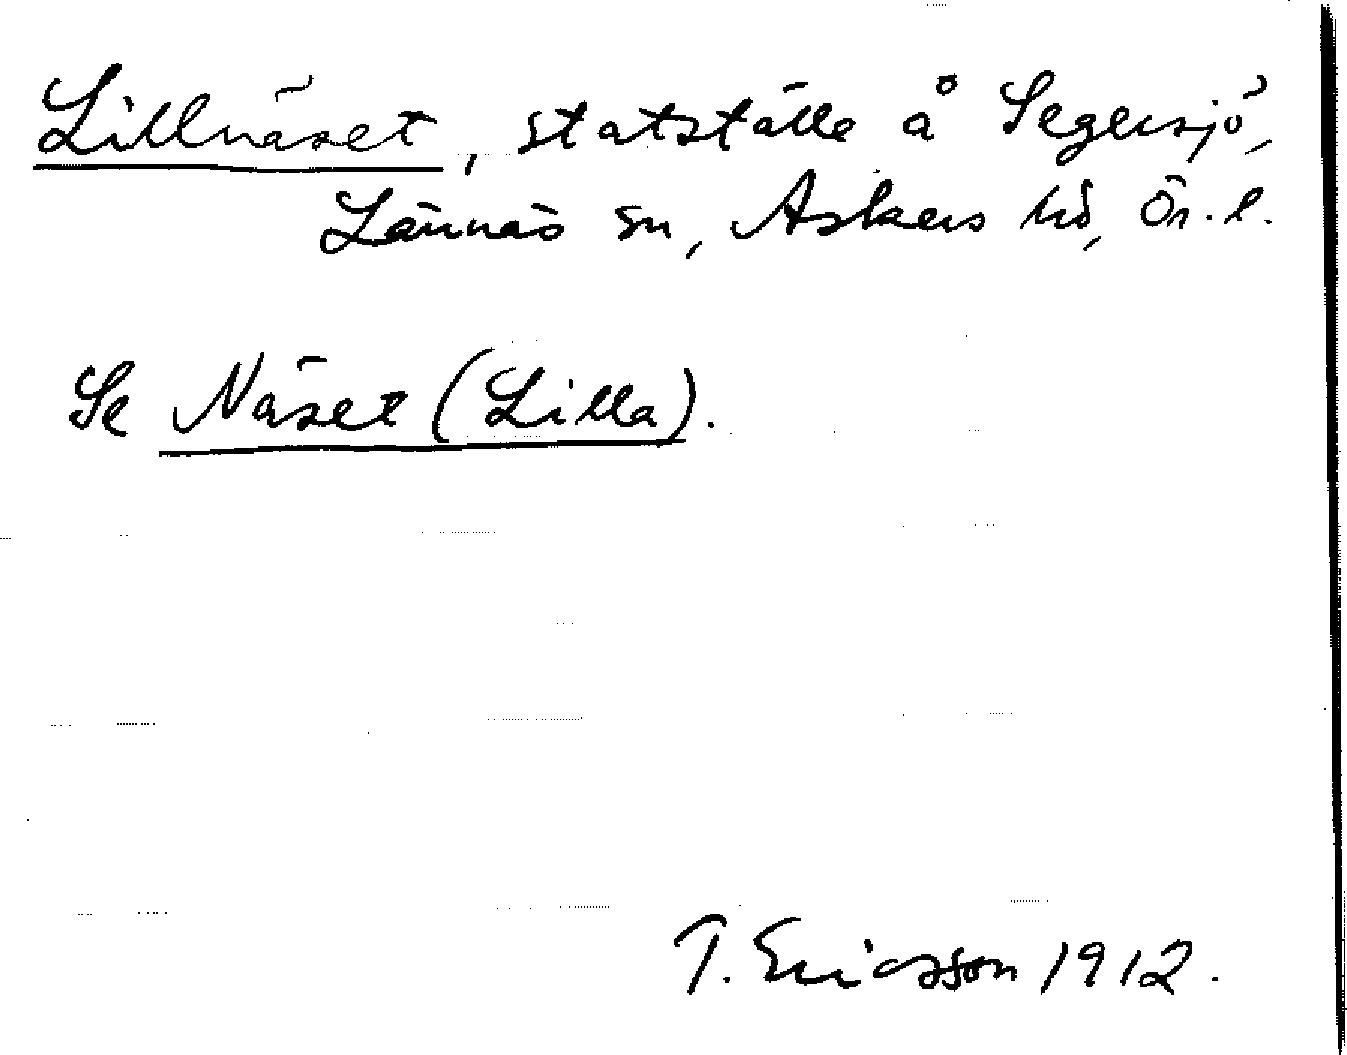 Lillnäset, statställe å Segersjö,
Lännäs sn, Askers hd, Ör. l.
Se Näset (Lilla).
T. Ericsson 1912.